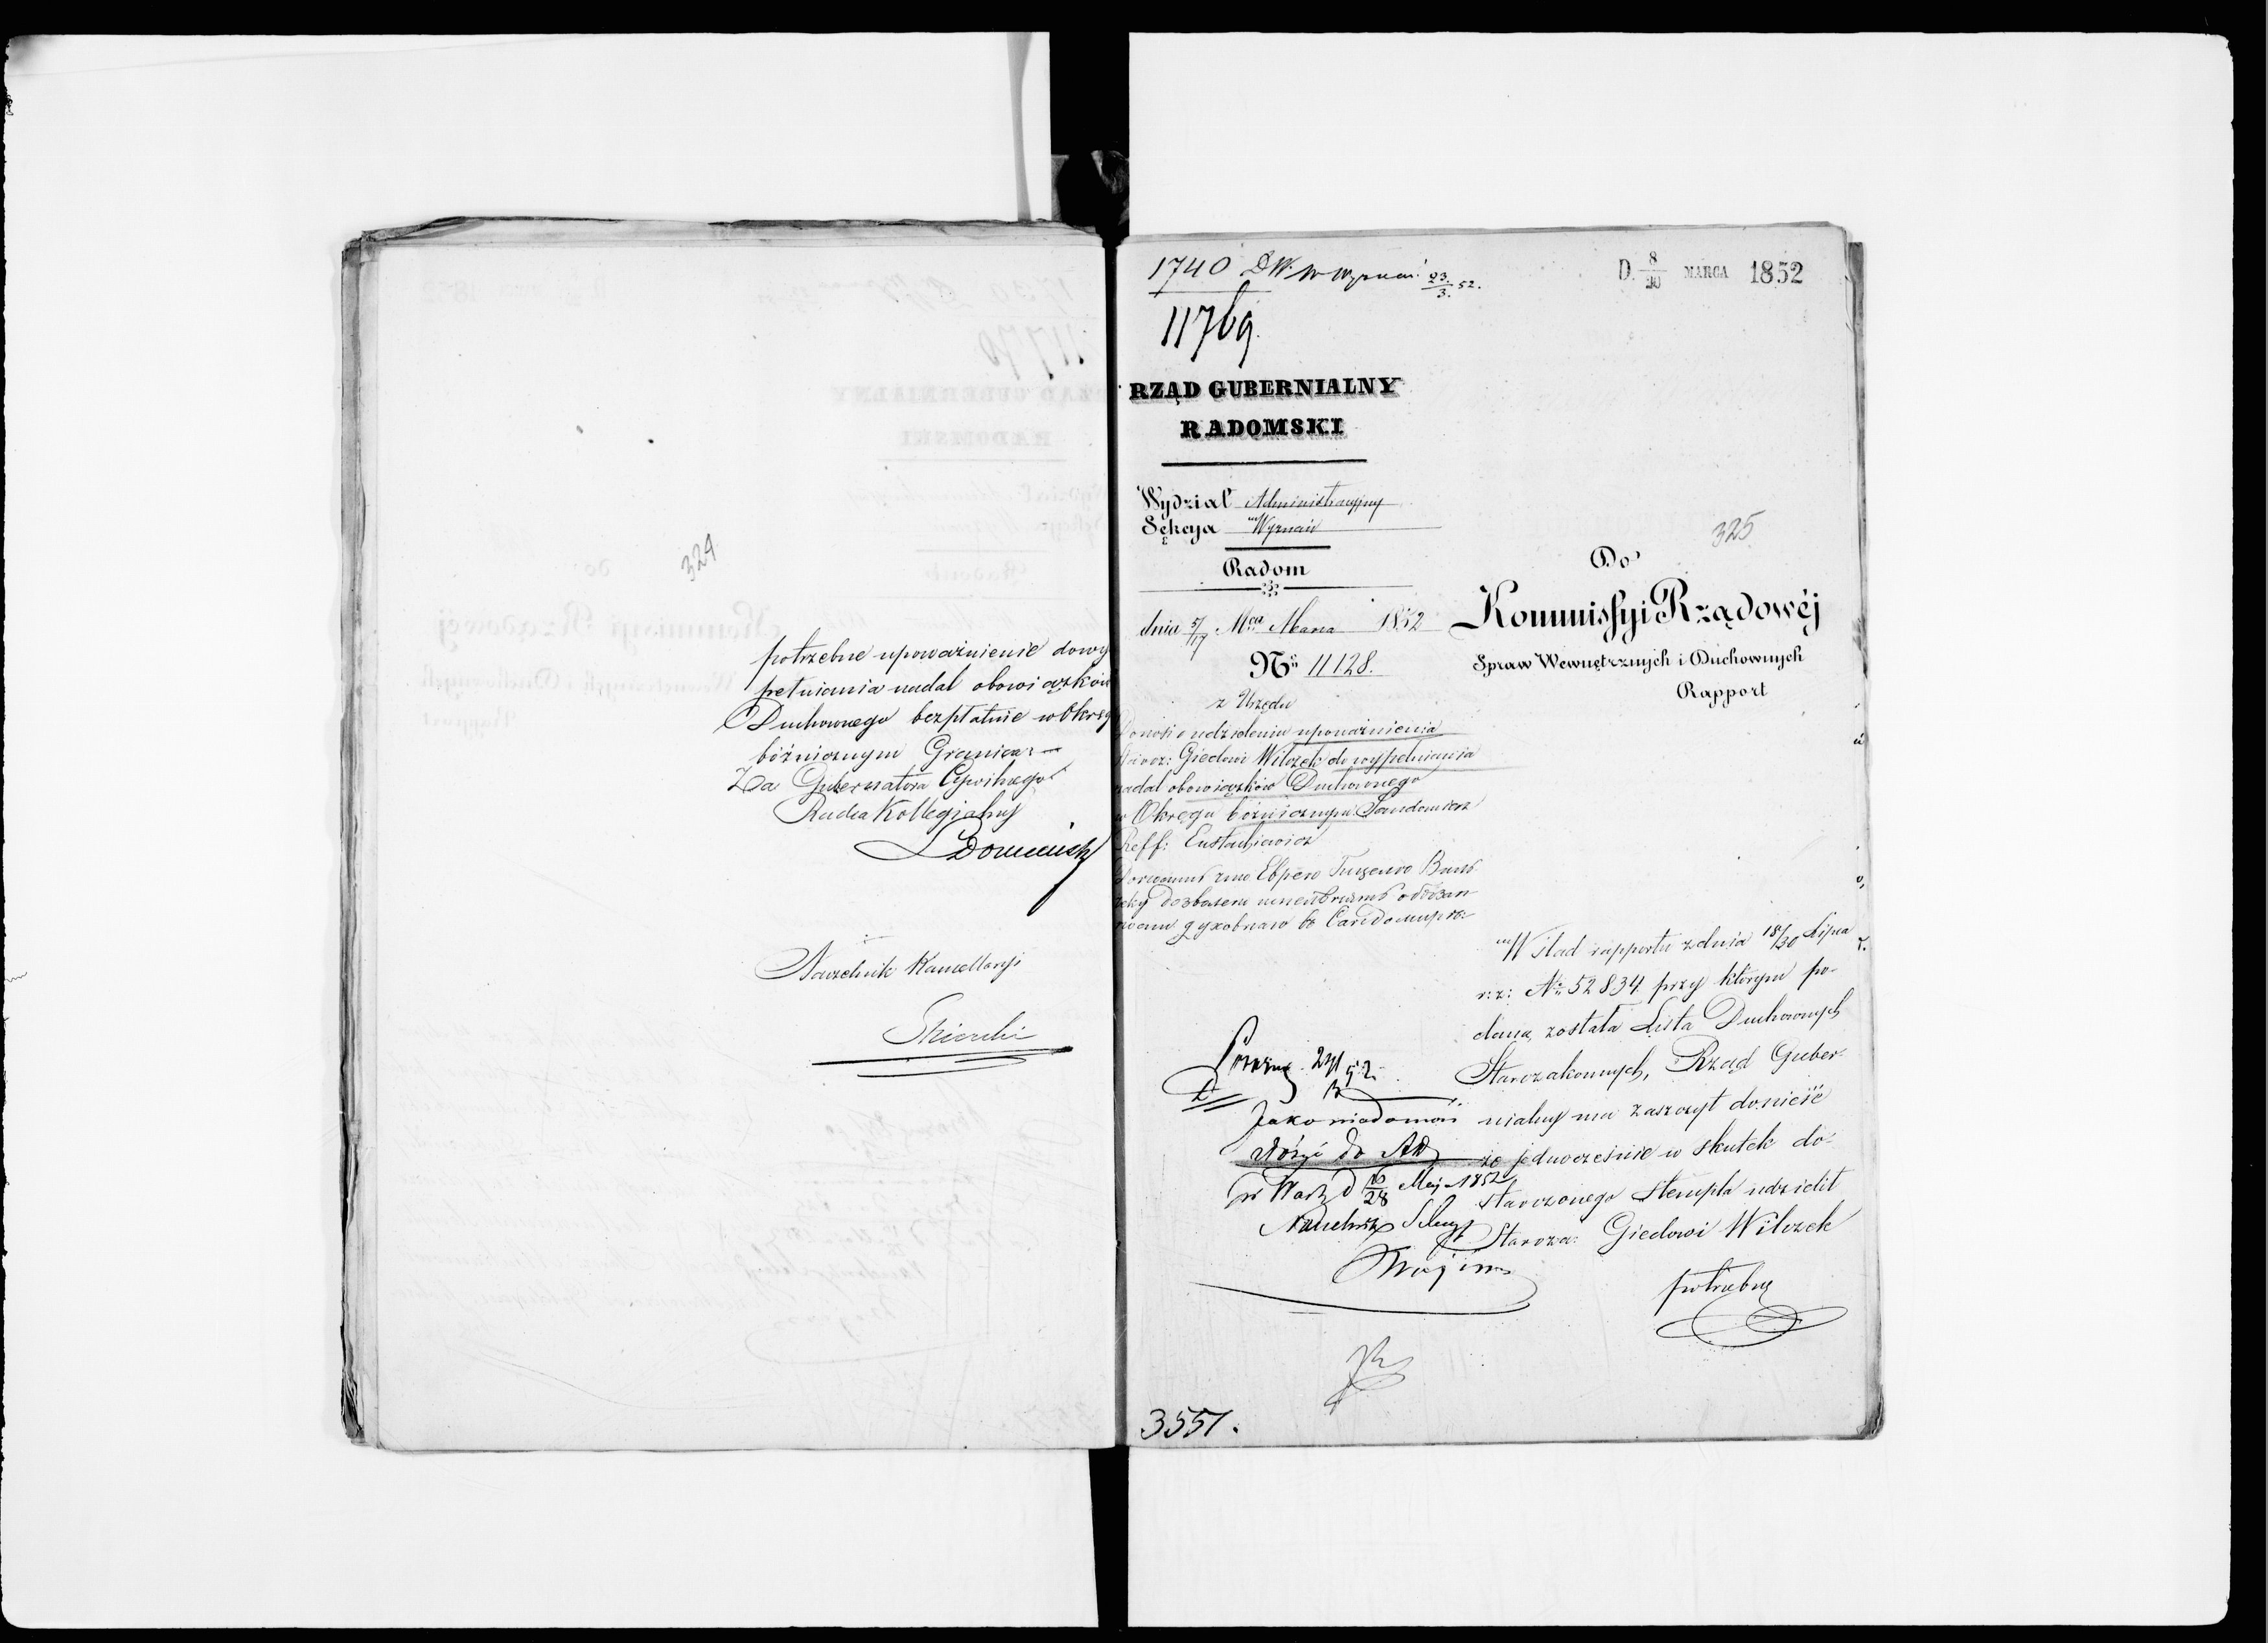 324
potrzebne upoważnienie do wy
pełniania nadal obowiązków
Duchownego bezpłatnie w Okrę
bóżnicznym Granica
Za Gubernatora Cywilnego
Radca Kollegialny
Naczelnik Kancellaryi
1740 D.W. w wyznań 23/3. 52.
11769.
D. 8/20 MARCA 1852
RZĄD GUBERNIALNY
RADOMSKI
Wydział Administracyjny
Sekcya Wyznań
Radom
dnia 5/17 Mca Marca 1852
No 11128.
325
Do
Kommissyi Rządowéj
Spraw Wewnętrznych i Duchownych
Rapport
z Urzędu
Donosi o udzieleniu upoważnienia
Staroz: Giedowi Wilczek do wypełniania
nadal obowiązków Duchownego
w Okręgu bóżnicznym Sandomierz
Reff: Eustachiewicz
W ślad rapportu z dnia 18/30 Lipca
r: z: No 52834 przy którym po-
dana została Lista Duchownych
Starozakonnych, Rząd Guber-
nialny ma zaszczyt donieść
że jednocześnie w skutek do-
starczonego stempla udzielił
Staroza: Giedowi Wilczek
potrzebne
Jako wiadomość
złożyć do Akt
w Warsz d 16/28 Maj 1852
Naczelnik Sekcyi
3551.